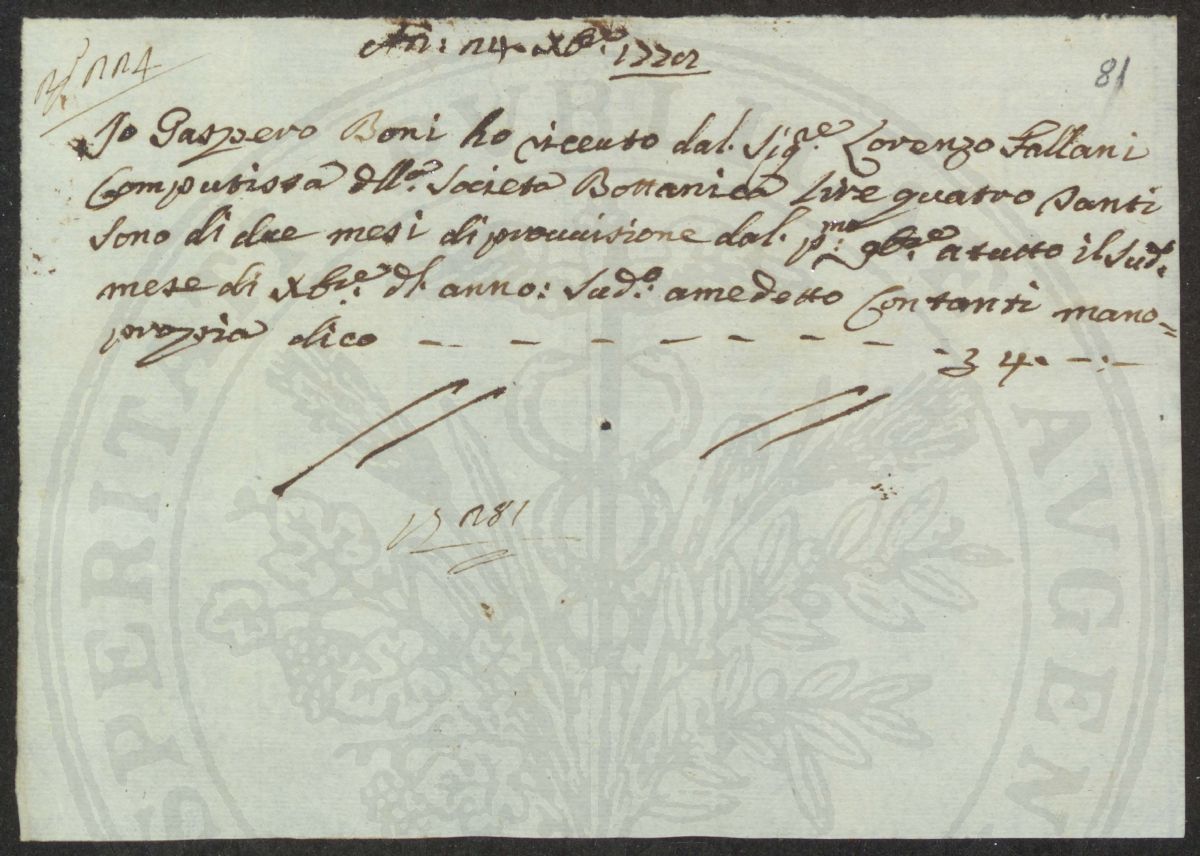 Adì: 24. Xbre: 1772
N 224
81
Io Gaspero Boni ho riceuto dal. Sigre: Lorenzo Fallani
Computista dlla. Società Bottanica Lire quatro Tanti
Sono di due mesi di prouuisione dal. pmo: 9bre: a tutto il Sudo:
mese di Xbre: dl. anno: Sudo: a me detto Contanti mano=
propria dico — — — — — — — —
- 3 4. —:—
281
PROSPERITATI PUBLICAE AUGENDAE